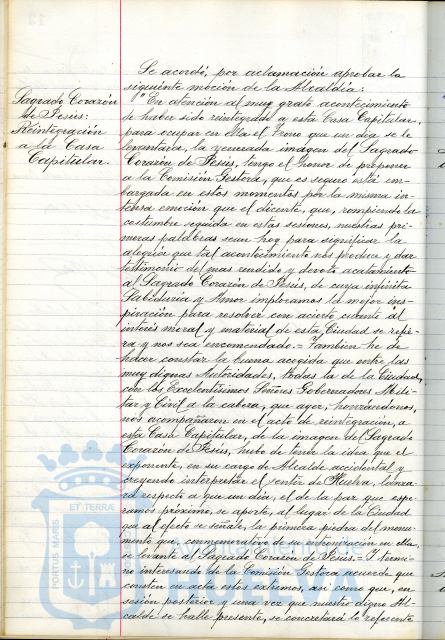 Sagrado Corazón
de Jesus:
Reintegración
a la Casa
Capitular.
Se acordó, por aclamación aprobar la
siguiente moción de la Alcaldia:
"En atención al muy grato acontecimiento
de haber sido reintegrada a esta Casa Capitular,
para ocupar en ella el trono que un dia se le
levantara, la venerada imagen del Sagrado
Corazón de Jesús, tengo el honor de proponer
a la Comisión Gestora, que es seguro está em-
bargada en estos momentos por la misma in-
tensa emoción que el dicente, que, rompiendo la
costumbre seguida en estas sesiones, nuestras pri-
meras palabras sean hoy para significar la
alegria que tal acontecimiento nos produce y dar
testimonio del mas rendido y devoto acatamiento
al Sagrado Corazón de Jesús, de cuya infinita
Sabiduria y Amor imploramos la mejor ins-
piración para resolver con acierto cuanto al
interés moral y material de esta Ciudad se refie-
ra y nos sea encomendado.= Tambien he de
hacer constar la buena acogida que entre las
muy dignas Autoridades, todas la de la Ciudad,
con los Excelentisimos Señores Gobernadores Mili-
tar y Civil a la cabeza, que ayer, honrándonos,
nos acompañaron en el acto de reintegración, a
esta Casa Capitular, de la imagen del Sagrado
Corazón de Jesús, hubo de tener la idea que el
exponente, en su cargo de Alcalde accidental y
creyendo interpretar el sentir de Huelva, lanza-
ra respecto a que un dia, el de la paz que espe-
ramos próximo, se aporte, al lugar de la Ciudad
que al efecto se señale, la primera piedra del monu-
mento que, conmemorativo de su entronización en ella,
se levante al Sagrado Corazón de Jesús.= Y termi-
no interesando de la Comisión Gestora acuerde que
consten en acta estos extremos, asi como que, en
sesión posterior y una vez que nuestro digno Al-
calde se halle presente, se concretará lo referente
PORTUS MARIS
ET TERRA